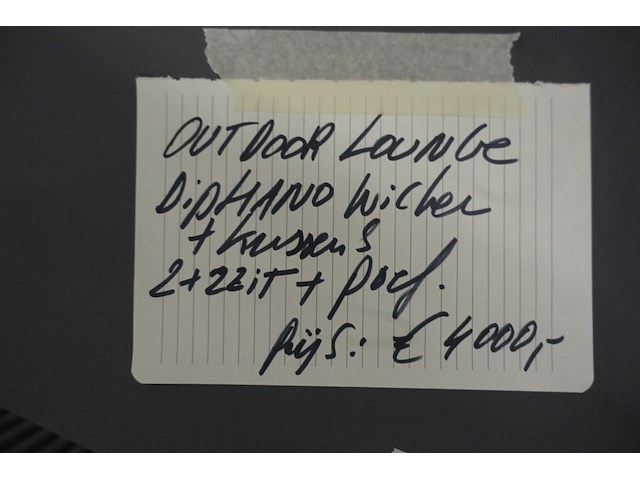 OUTDOOR LOUNGE
DipHANO Wicker
+ kussens
2+2Zit + poef.
Prijs: € 4000,-